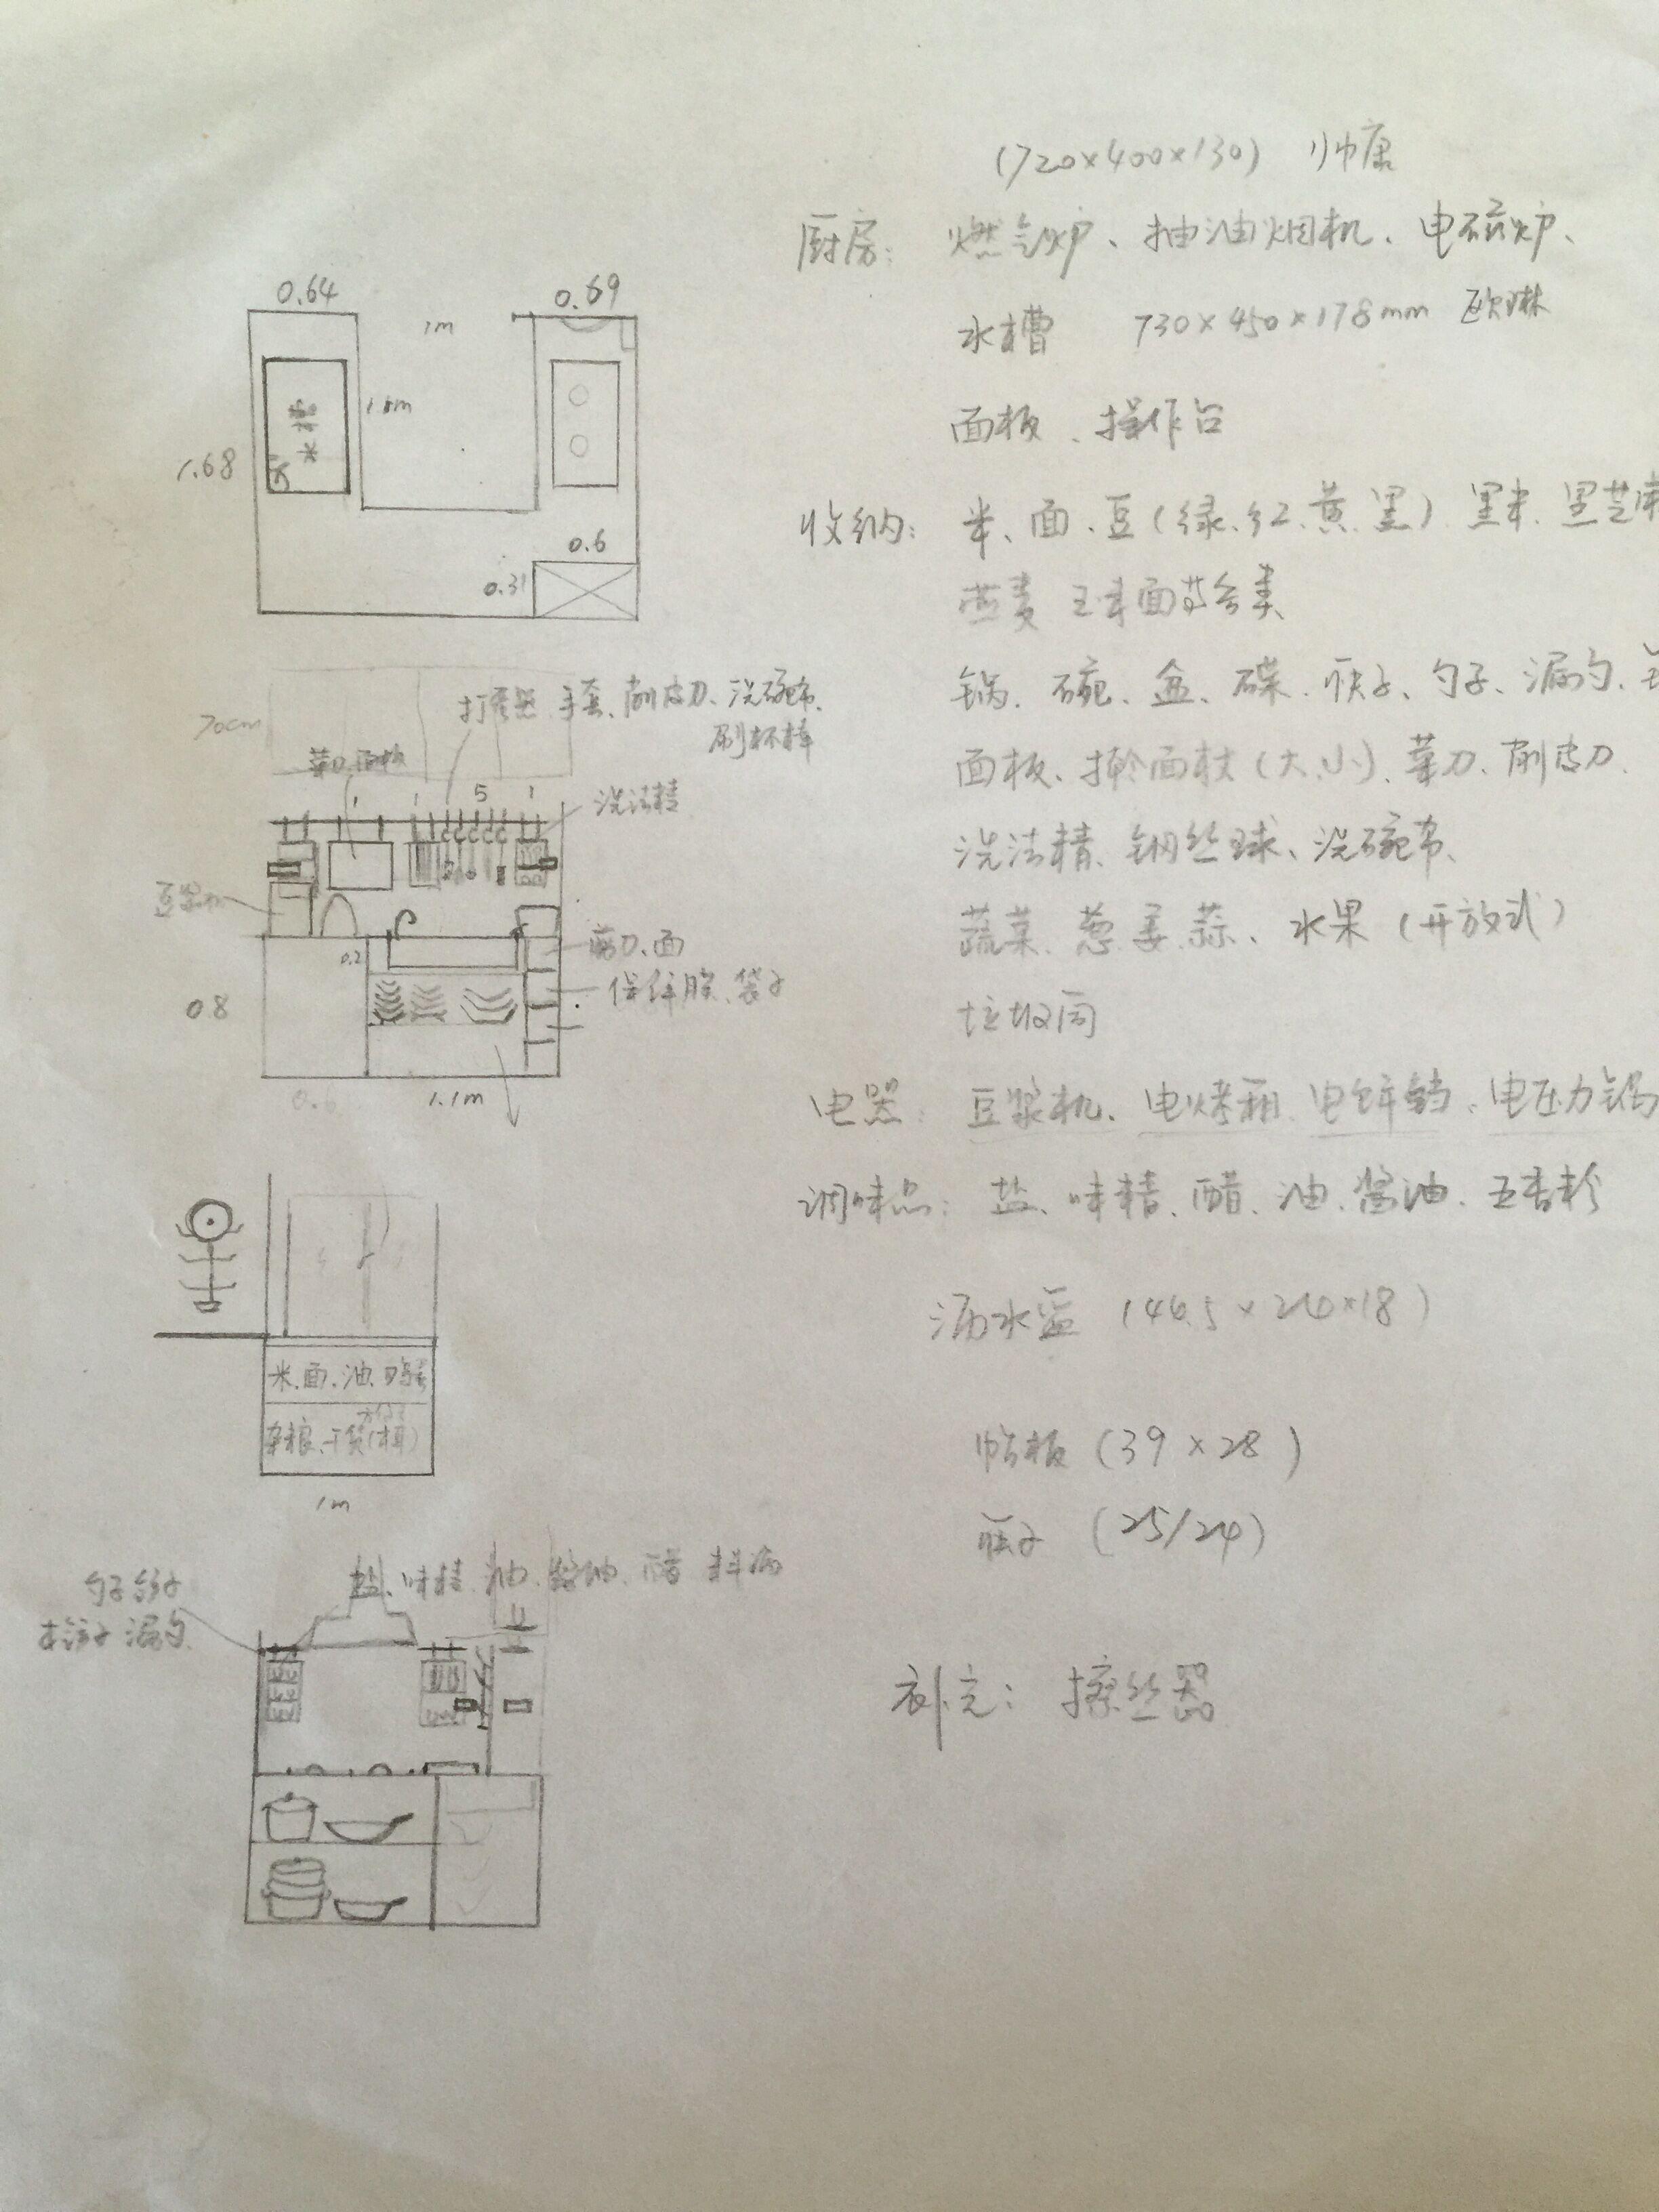 (720×400×130) 帅康
厨房: 燃气炉、抽油烟机、电磁炉、
水槽 730×450×178mm 欧琳
面板、操作台
收纳: 米、面、豆(绿、红、黄、黑)、黑米、黑芝麻
燕麦 玉米面等各类
锅、碗、盆、碟、筷子、勺子、漏勺、
面板、擀面杖(大、小)、菜刀、削皮刀、
洗洁精、钢丝球、洗碗布、
蔬菜、葱、姜、蒜、水果(开放式)
垃圾筒
电器: 豆浆机、电烤箱、电饼铛、电压力锅
调味品: 盐、味精、醋、油、酱油、五香粉
沥水篮 (46.5×26×18)
粘板 (39×28)
筷子 (25/24)
补充: 擦丝器
0.64
1m
0.69
水槽
1.8m
1.68
0.6
0.31
70cm
打蛋器、手套、削皮刀、洗碗布、
刷杯棒
菜刀、面板
1 1 5 1
洗洁精
豆浆机
0.2
剪刀、面
保鲜膜、袋子
0.8
0.6
1.1m
米、面、油、鸡蛋
杂粮、干货(木耳)
1m
勺子 铲子
木铲子 漏勺
盐、味精、油、酱油、醋 料酒